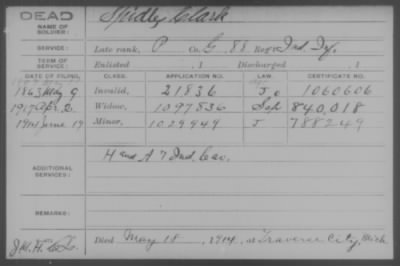 DEAD
NAME OF SOLDIER: Spidley Clark
SERVICE: Late rank, P Co. G, 88 Reg't Ind. Inf.
TERM OF SERVICE: Enlisted , 1 Discharged , 1
DATE OF FILING. CLASS. APPLICATION NO. LAW. CERTIFICATE NO.
1863 May 9 Invalid, 21836 1060606
1917 Apr. 2 Widow, 1097836 840,018
1914 June 19 Minor, 1029949 J 788249
ADDITIONAL SERVICES: H and A 7 Ind. Cav.
REMARKS:
Died May 18, 1914, at Traverse City, Mich.